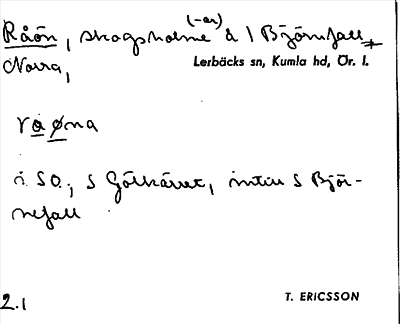 Råön, skogsholme (-ar) å 1 Björnfall,
Norra,
Lerbäcks sn, Kumla hd, Ör. l.
råøna
i SO., S Götkärret, intill S Björ-
nefall
2.1
T. ERICSSON